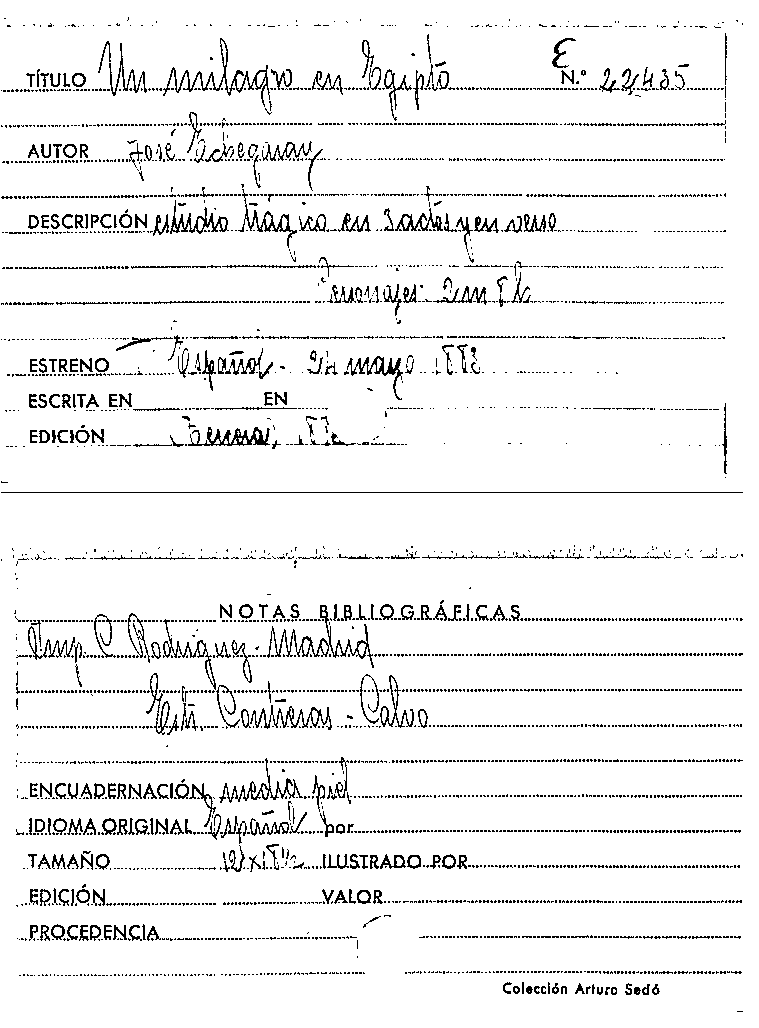 TÍTULO Un milagro en Egipto E N.º 22435
AUTOR José Echegaray
DESCRIPCIÓN estudio trágico en 3 actos y en verso
Personajes 2m 8h
ESTRENO Español - 24 mayo 1883
ESCRITA EN EN
EDICIÓN
NOTAS BIBLIOGRÁFICAS
Imp. C Rodriguez - Madrid
Estr. Contreras - Calvo
ENCUADERNACIÓN media piel
IDIOMA ORIGINAL Español por
TAMAÑO 12 x 18½ ILUSTRADO POR
EDICIÓN VALOR
PROCEDENCIA
Colección Arturo Sedó